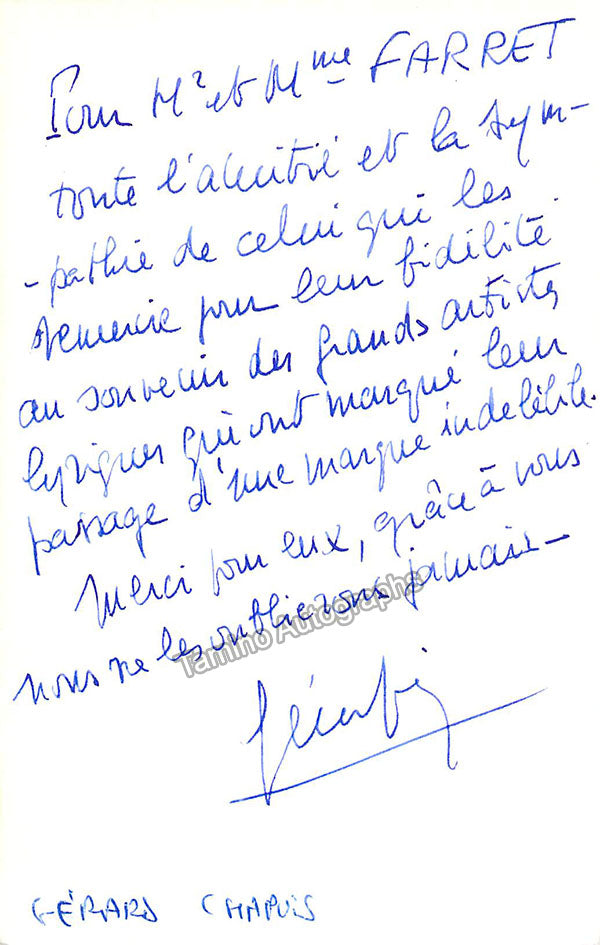 Pour Mr et Mme FARRET
toute l'amitié et la sym-
-pathie de celui qui les
remercie pour leur fidélité
au souvenir des grands artistes
lyriques qui ont marqué leur
passage d'une marque indélébile.
Merci pour eux, grâce à vous
nous ne les oublierons jamais-
Tamino Autographs
GÉRARD CHAPUIS